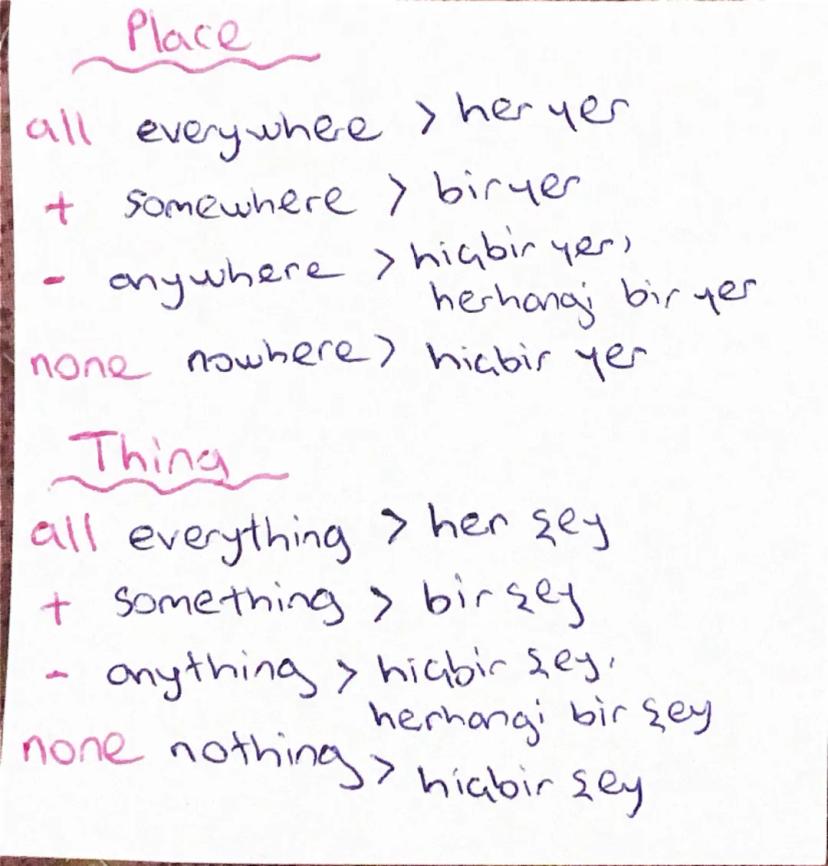 Place
all everywhere > her yer
+ somewhere > bir yer
- anywhere > hiçbir yer,
herhangi bir yer
none nowhere > hiçbir yer
Thing
all everything > her şey
+ something > bir şey
- anything > hiçbir şey,
herhangi bir şey
none nothing > hiçbir şey